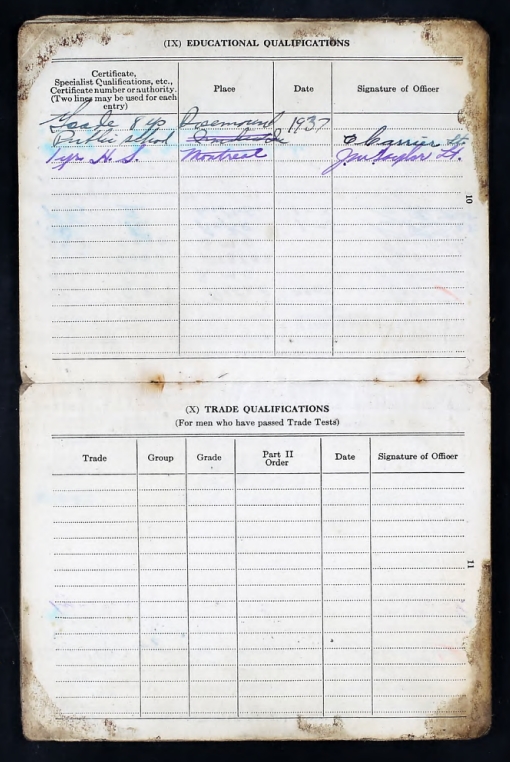 (IX) EDUCATIONAL QUALIFICATIONS
Certificate,
Specialist Qualifications, etc.,
Certificate number or authority.
(Two lines may be used for each
entry)
Place
Date
Signature of Officer
Grade 8 Rosemount 1937
Public School Carrier Lt.
1 yr H. S. Montreal Lt.
10
(X) TRADE QUALIFICATIONS
(For men who have passed Trade Tests)
Trade
Group
Grade
Part II
Order
Date
Signature of Officer
11